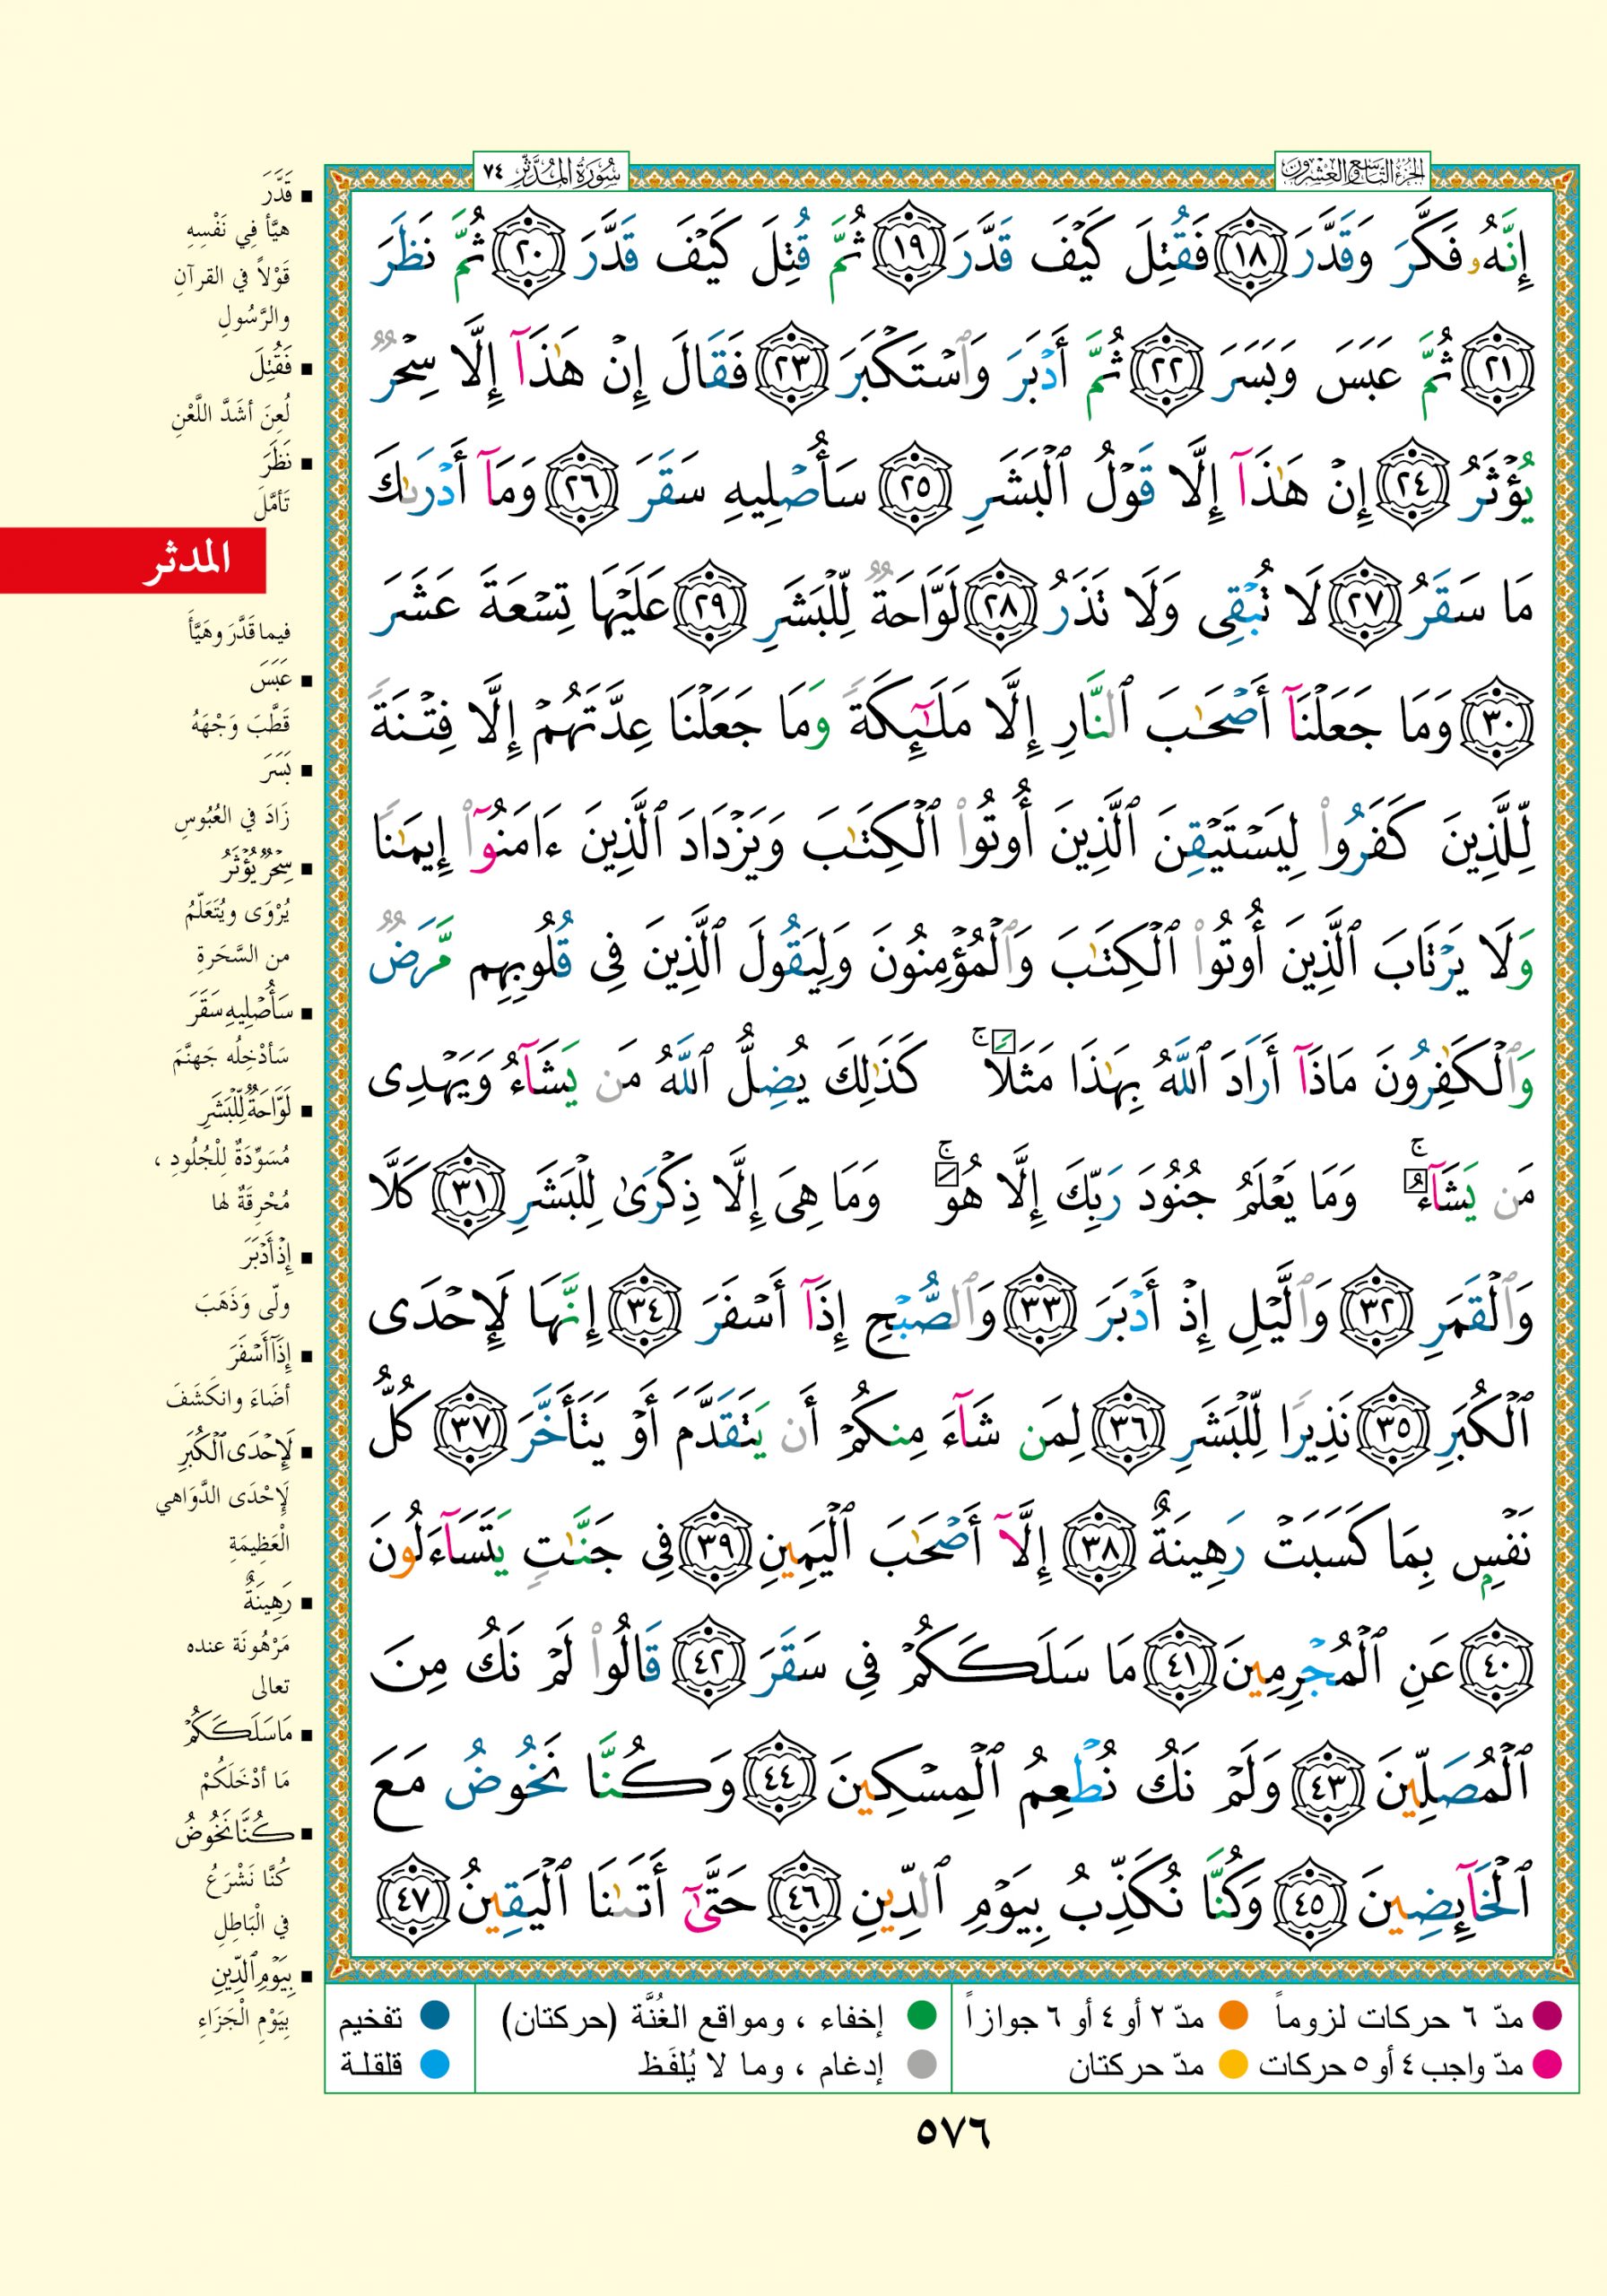 الجزء التاسع والعشرون
سورة المدثر ٧٤
إِنَّهُۥ فَكَّرَ وَقَدَّرَ ١٨ فَقُتِلَ كَيْفَ قَدَّرَ ١٩ ثُمَّ قُتِلَ كَيْفَ قَدَّرَ ٢٠ ثُمَّ نَظَرَ
٢١ ثُمَّ عَبَسَ وَبَسَرَ ٢٢ ثُمَّ أَدْبَرَ وَٱسْتَكْبَرَ ٢٣ فَقَالَ إِنْ هَٰذَآ إِلَّا سِحْرٌ
يُؤْثَرُ ٢٤ إِنْ هَٰذَآ إِلَّا قَوْلُ ٱلْبَشَرِ ٢٥ سَأُصْلِيهِ سَقَرَ ٢٦ وَمَآ أَدْرَىٰكَ
مَا سَقَرُ ٢٧ لَا تُبْقِى وَلَا تَذَرُ ٢٨ لَوَّاحَةٌ لِّلْبَشَرِ ٢٩ عَلَيْهَا تِسْعَةَ عَشَرَ
٣٠ وَمَا جَعَلْنَآ أَصْحَٰبَ ٱلنَّارِ إِلَّا مَلَٰٓئِكَةً وَمَا جَعَلْنَا عِدَّتَهُمْ إِلَّا فِتْنَةً
لِّلَّذِينَ كَفَرُوا۟ لِيَسْتَيْقِنَ ٱلَّذِينَ أُوتُوا۟ ٱلْكِتَٰبَ وَيَزْدَادَ ٱلَّذِينَ ءَامَنُوٓا۟ إِيمَٰنًا
وَلَا يَرْتَابَ ٱلَّذِينَ أُوتُوا۟ ٱلْكِتَٰبَ وَٱلْمُؤْمِنُونَ وَلِيَقُولَ ٱلَّذِينَ فِى قُلُوبِهِم مَّرَضٌ
وَٱلْكَٰفِرُونَ مَاذَآ أَرَادَ ٱللَّهُ بِهَٰذَا مَثَلًا ۚ كَذَٰلِكَ يُضِلُّ ٱللَّهُ مَن يَشَآءُ وَيَهْدِى
مَن يَشَآءُ ۚ وَمَا يَعْلَمُ جُنُودَ رَبِّكَ إِلَّا هُوَ ۚ وَمَا هِىَ إِلَّا ذِكْرَىٰ لِلْبَشَرِ ٣١ كَلَّا
وَٱلْقَمَرِ ٣٢ وَٱلَّيْلِ إِذْ أَدْبَرَ ٣٣ وَٱلصُّبْحِ إِذَآ أَسْفَرَ ٣٤ إِنَّهَا لَإِحْدَى
ٱلْكُبَرِ ٣٥ نَذِيرًا لِّلْبَشَرِ ٣٦ لِمَن شَآءَ مِنكُمْ أَن يَتَقَدَّمَ أَوْ يَتَأَخَّرَ ٣٧ كُلُّ
نَفْسٍۭ بِمَا كَسَبَتْ رَهِينَةٌ ٣٨ إِلَّآ أَصْحَٰبَ ٱلْيَمِينِ ٣٩ فِى جَنَّٰتٍ يَتَسَآءَلُونَ
٤٠ عَنِ ٱلْمُجْرِمِينَ ٤١ مَا سَلَكَكُمْ فِى سَقَرَ ٤٢ قَالُوا۟ لَمْ نَكُ مِنَ
ٱلْمُصَلِّينَ ٤٣ وَلَمْ نَكُ نُطْعِمُ ٱلْمِسْكِينَ ٤٤ وَكُنَّا نَخُوضُ مَعَ
ٱلْخَآئِضِينَ ٤٥ وَكُنَّا نُكَذِّبُ بِيَوْمِ ٱلدِّينِ ٤٦ حَتَّىٰٓ أَتَىٰنَا ٱلْيَقِينُ ٤٧
قَدَّرَ
هيَّأ فِي نَفْسِهِ
قَوْلاً في القرآنِ
والرَّسُولِ
فَقُتِلَ
لُعِنَ أشَدَّ اللَّعْنِ
نَظَرَ
تَأمَّلَ
المدثر
فيما قَدَّرَ وهَيَّأَ
عَبَسَ
قَطَّبَ وَجْهَهُ
بَسَرَ
زَادَ في العُبُوسِ
سِحْرٌ يُؤْثَرُ
يُرْوَى ويُتَعَلَّمُ
من السَّحَرةِ
سَأُصْلِيهِ سَقَرَ
سَأدْخِلُه جَهنَّمَ
لَوَّاحَةٌ لِّلْبَشَرِ
مُسَوِّدَةٌ لِلْجُلُودِ ،
مُحْرِقَةٌ لها
إِذْ أَدْبَرَ
ولّى وَذَهَبَ
إِذَآ أَسْفَرَ
أضَاءَ وانكَشَفَ
لَإِحْدَى ٱلْكُبَرِ
لَإِحْدَى الدَّوَاهي
الْعَظِيمَةِ
رَهِينَةٌ
مَرْهُونَة عنده
تعالى
مَا سَلَكَكُمْ
مَا أدْخَلَكُمْ
كُنَّا نَخُوضُ
كُنَّا نَشْرَعُ
في الْبَاطِلِ
بِيَوْمِ ٱلدِّينِ
بِيَوْمِ الْجَزَاءِ
مدّ ٦ حركات لزوماً مدّ ٢ أو ٤ أو ٦ جوازاً إخفاء ، ومواقع الغُنَّة (حركتان) تفخيم
مدّ واجب ٤ أو ٥ حركات مدّ حركتان إدغام ، وما لا يُلفَظ قلقلة
٥٧٦